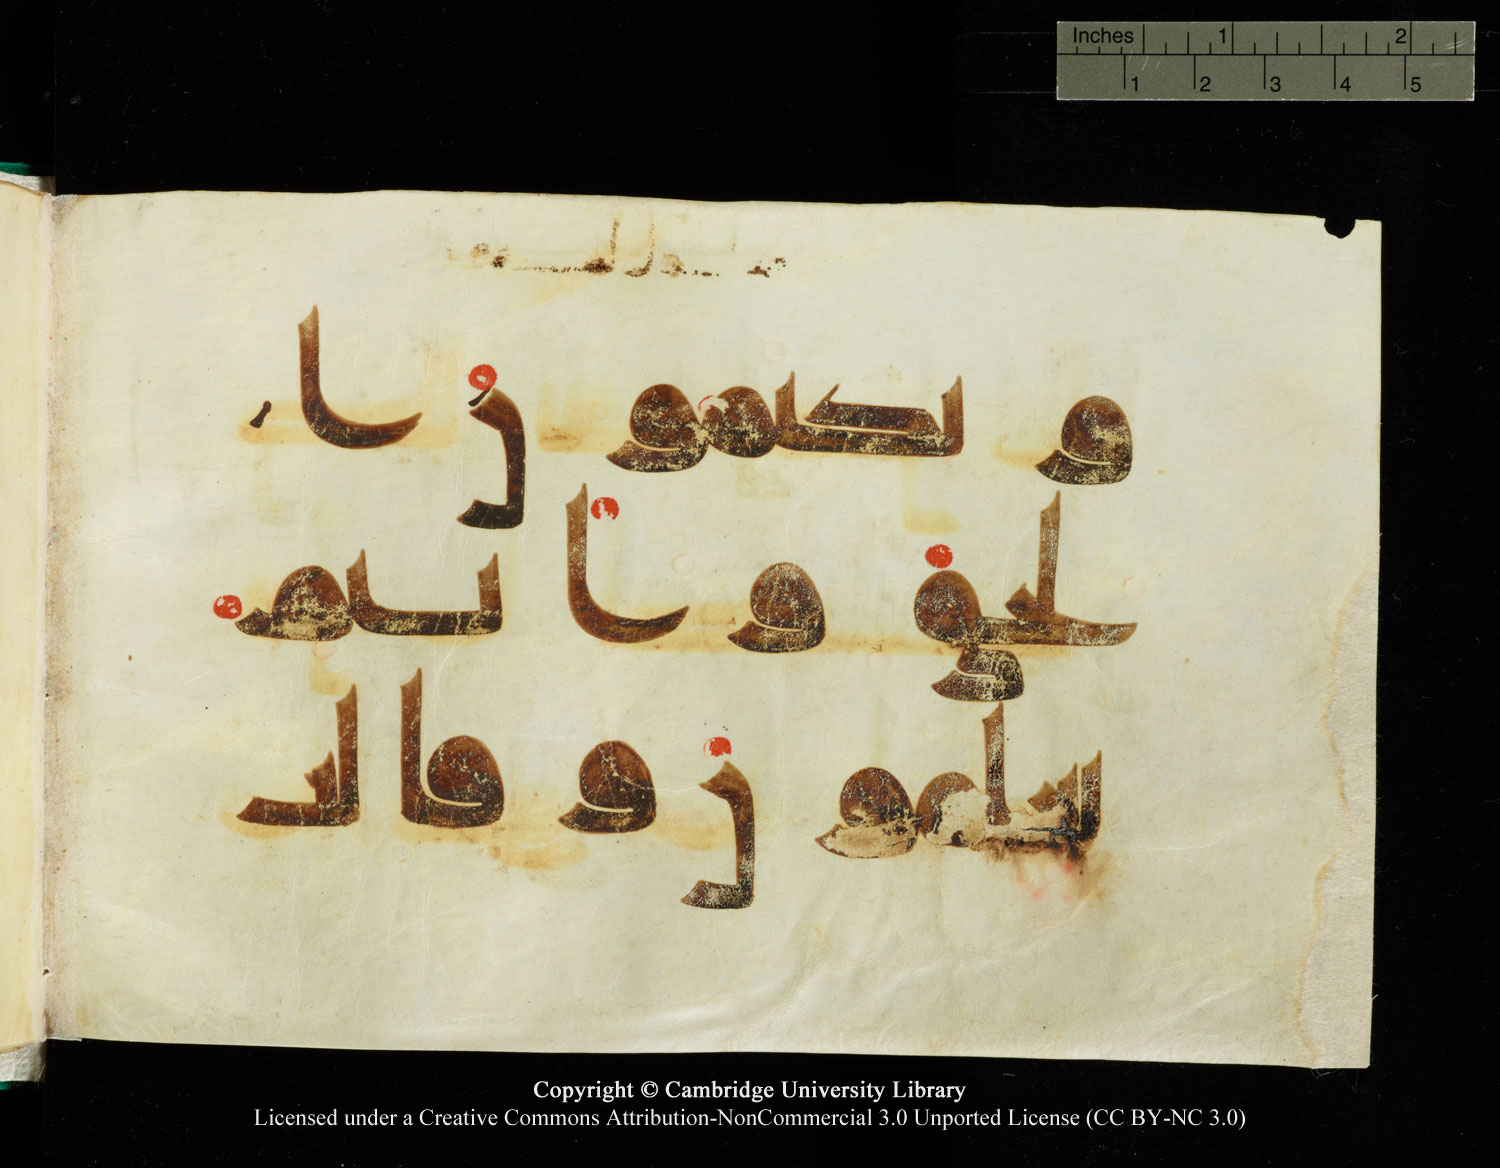 Inches 1 2
1 2 3 4 5
وتكتمون ا
لحق وانتم
تعلمون وقالت
Copyright © Cambridge University Library
Licensed under a Creative Commons Attribution-NonCommercial 3.0 Unported License (CC BY-NC 3.0)